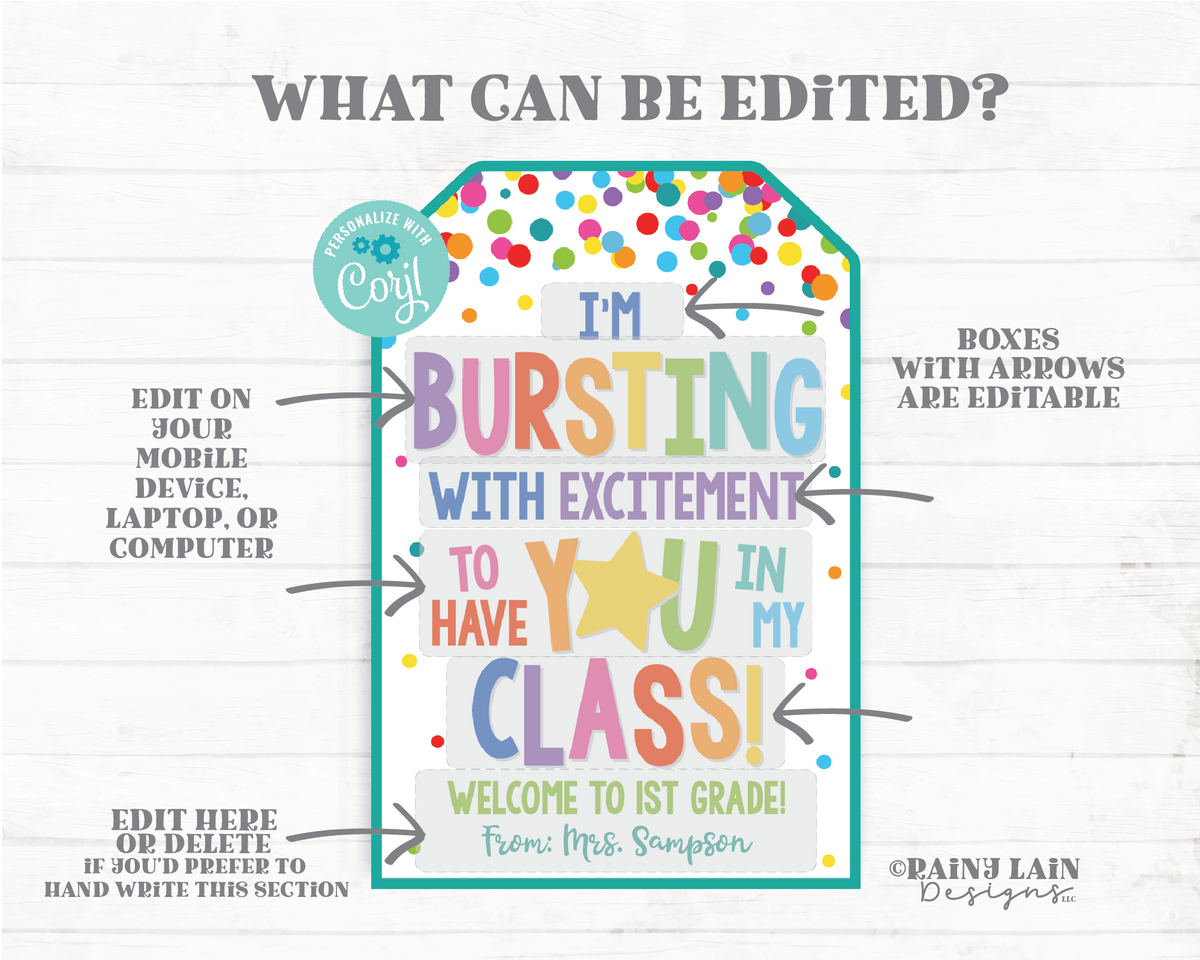 WHAT CAN BE EDiTED?
PERSONALIZE WITH
Corjl
I'M
BURSTING
WITH EXCITEMENT
TO
HAVE
Y U
IN
MY
CLASS!
WELCOME TO 1ST GRADE!
From: Mrs. Sampson
EDIT ON
YOUR
MOBiLE
DEViCE,
LAPTOP, OR
COMPUTER
BOXES
WiTH ARROWS
ARE EDiTABLE
EDIT HERE
OR DELETE
iF YOU'D PREFER TO
HAND WRiTE THiS SECTiON
©RAiNY LAiN
Designs LLC